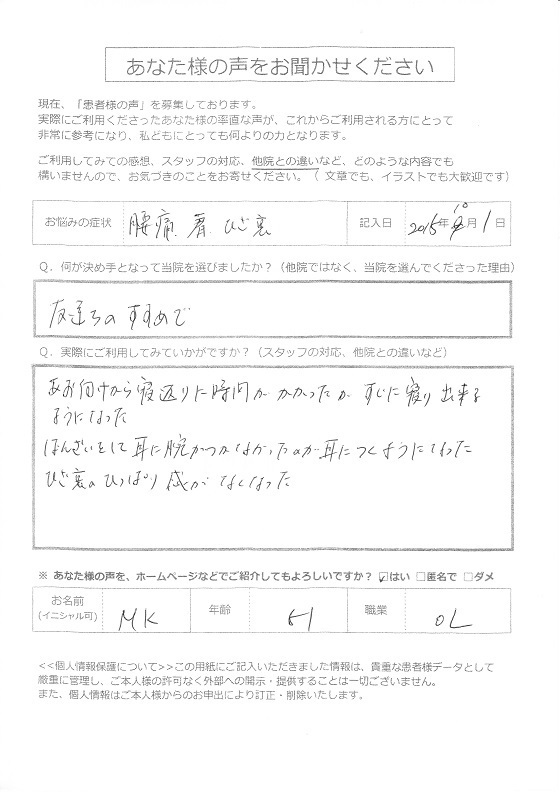 あなた様の声をお聞かせください
現在、「患者様の声」を募集しております。
実際にご利用くださったあなた様の率直な声が、これからご利用される方にとって
非常に参考になり、私どもにとっても何よりの力となります。
ご利用してみての感想、スタッフの対応、他院との違いなど、どのような内容でも
構いませんので、お気づきのことをお寄せください。（ 文章でも、イラストでも大歓迎です）
お悩みの症状 腰痛、肩、ひざ裏 記入日 2015年 10月 1日
Q．何が決め手となって当院を選びましたか？（他院ではなく、当院を選んでくださった理由）
友達のすすめで
Q．実際にご利用してみていかがですか？（スタッフの対応、他院との違いなど）
あお向けから寝返りに時間がかかったが すぐに寝り出来る
ようになった
ばんざいをして耳に腕がつかなかったのが耳につくようになった
ひざ裏のひっぱり感がなくなった
※ あなた様の声を、ホームページなどでご紹介してもよろしいですか？ ☑はい □匿名で □ダメ
お名前 (イニシャル可) MK 年齢 51 職業 OL
<<個人情報保護について>>この用紙にご記入いただきました情報は、貴重な患者様データとして
厳重に管理し、ご本人様の許可なく外部への開示・提供することは一切ございません。
また、個人情報はご本人様からのお申出により訂正・削除いたします。